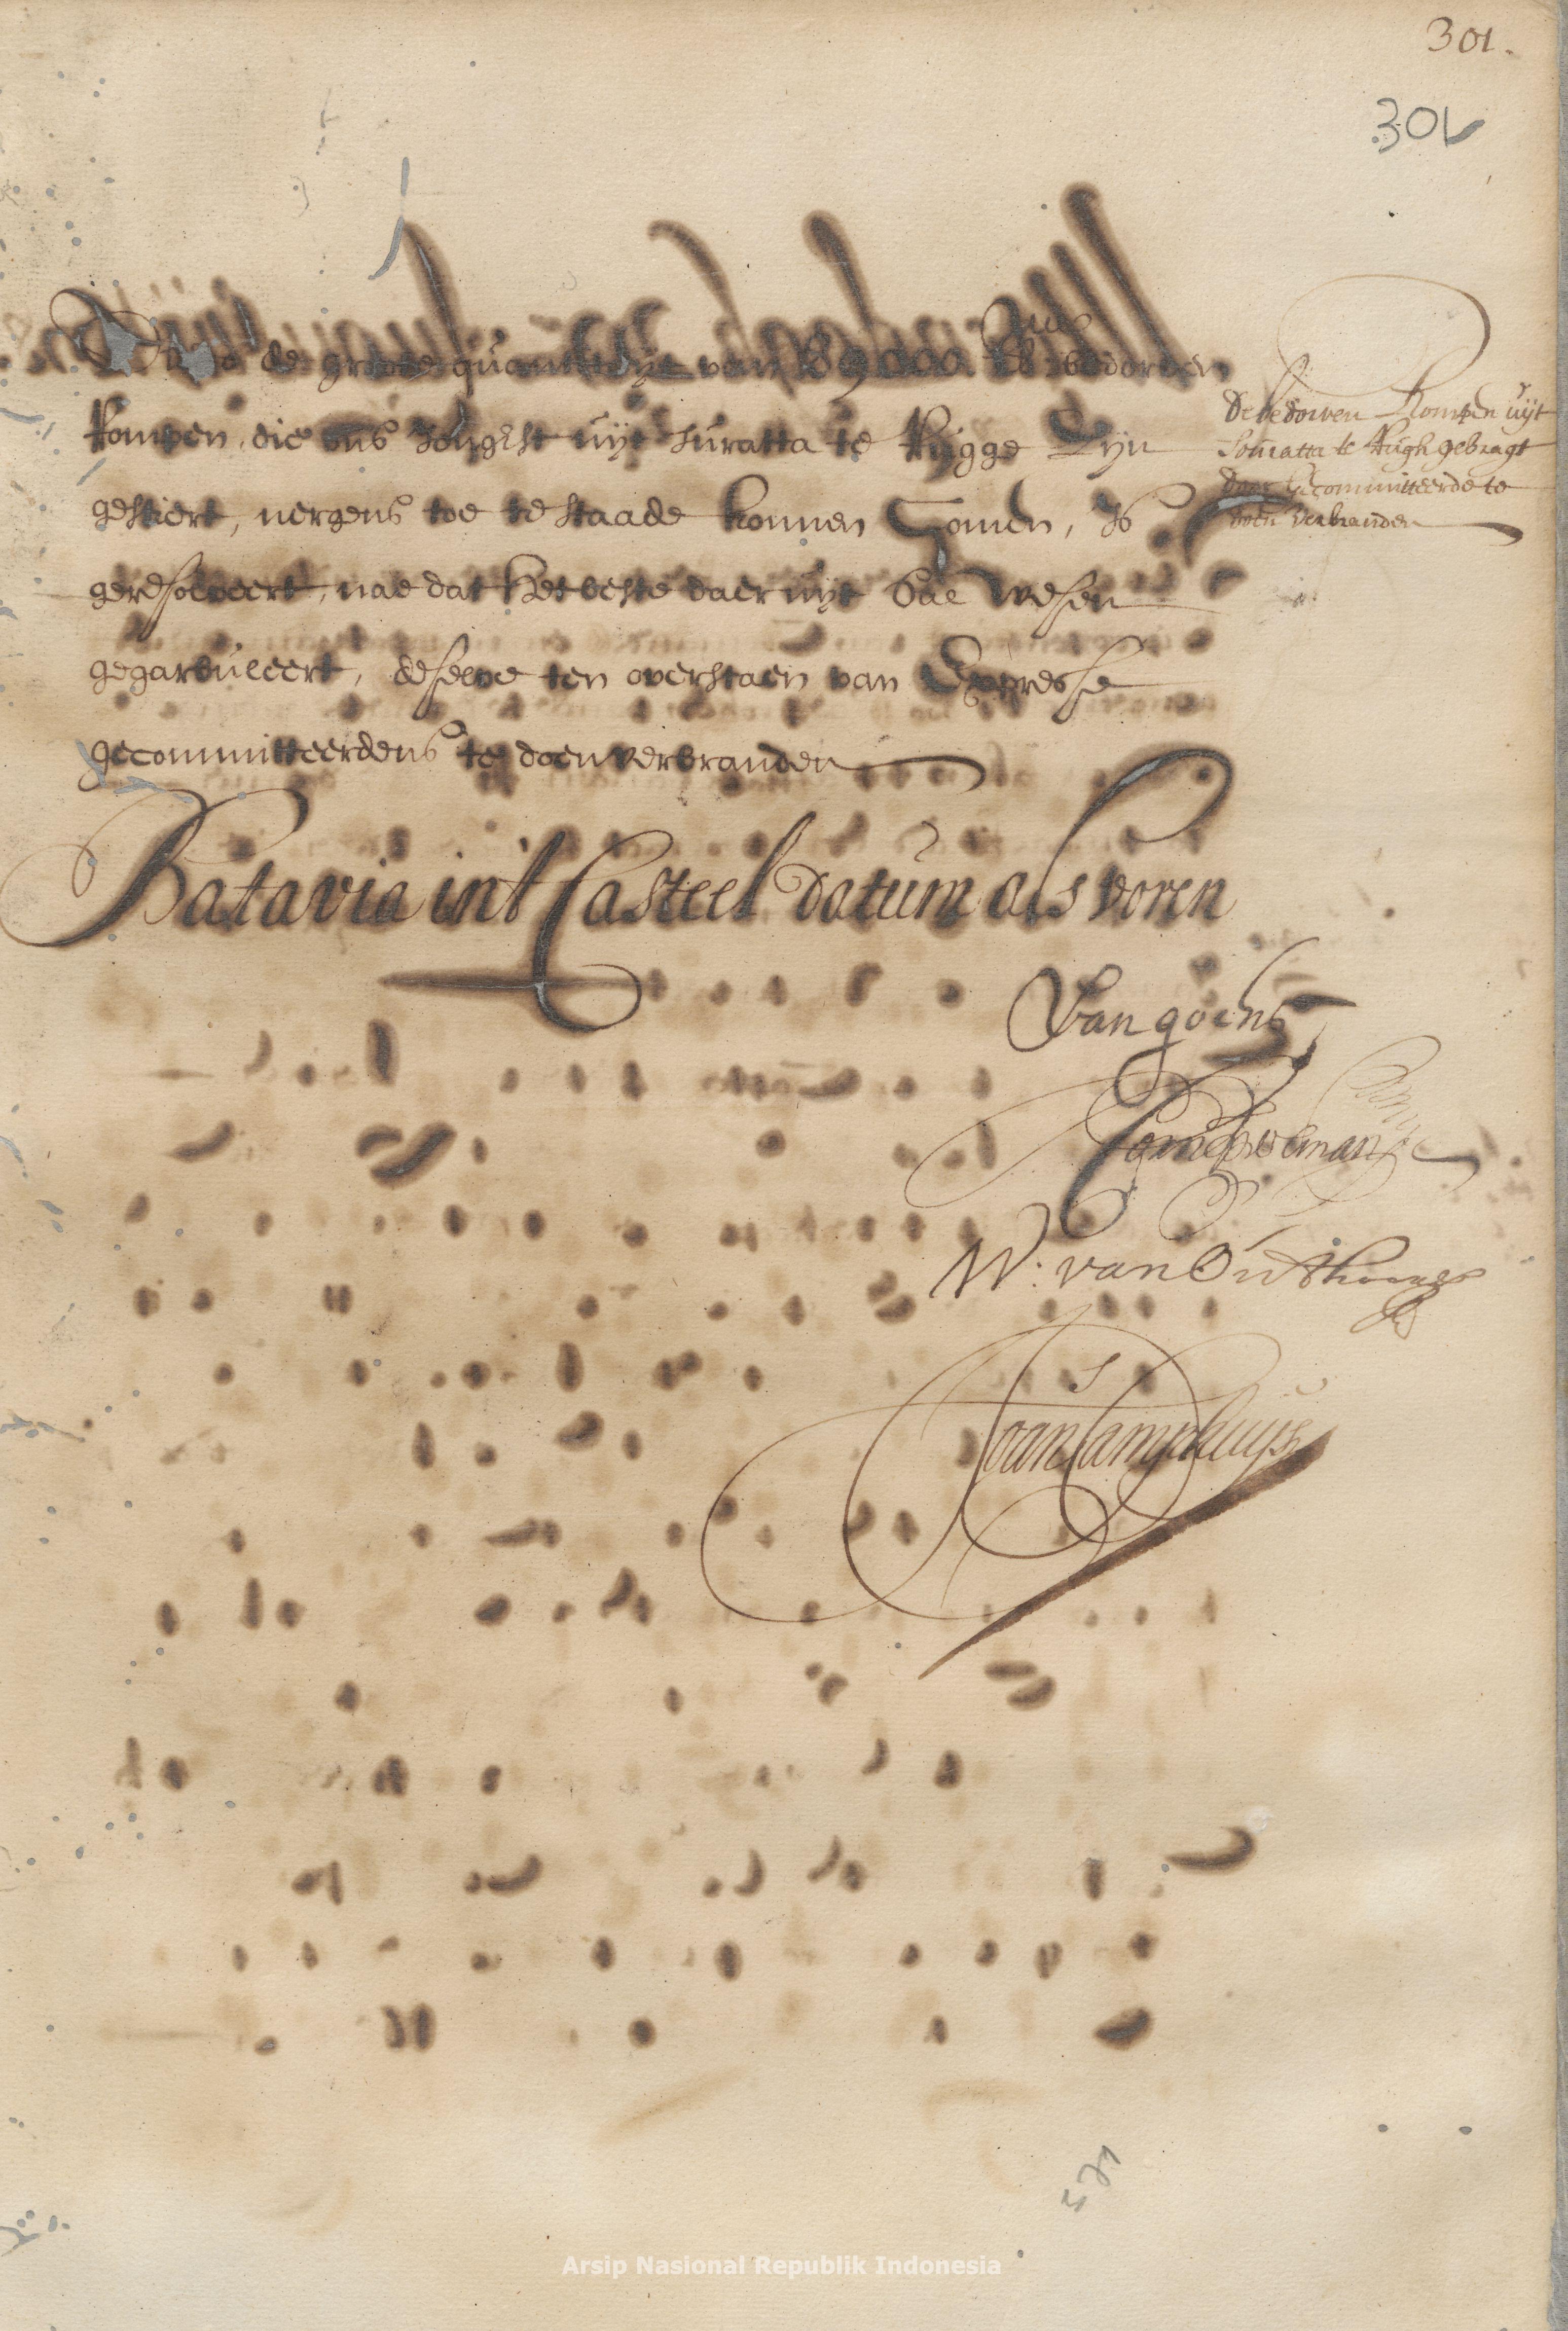 301.
301
de groote quantiteyt van 89000 lb bedorven
Rompen, die ons Jongst uyt Suratta te Rugge Zyn
gestiert, nergens toe te staade konnen Comen, Is
geresolveert, nae dat het beste daer uyt sal wesen
gegarbuleert, deselve ten overstaen van Expresse
gecommitteerdens te doen verbranden
De bedorven Rompen uyt
Souratta te Rugh gebragt
door Gecommitteerde te
doen verbranden
Batavia int Casteel datum als voren
Van goens
Corn: Speelman
W: van Outhoorn
Joan Camphuys
Arsip Nasional Republik Indonesia